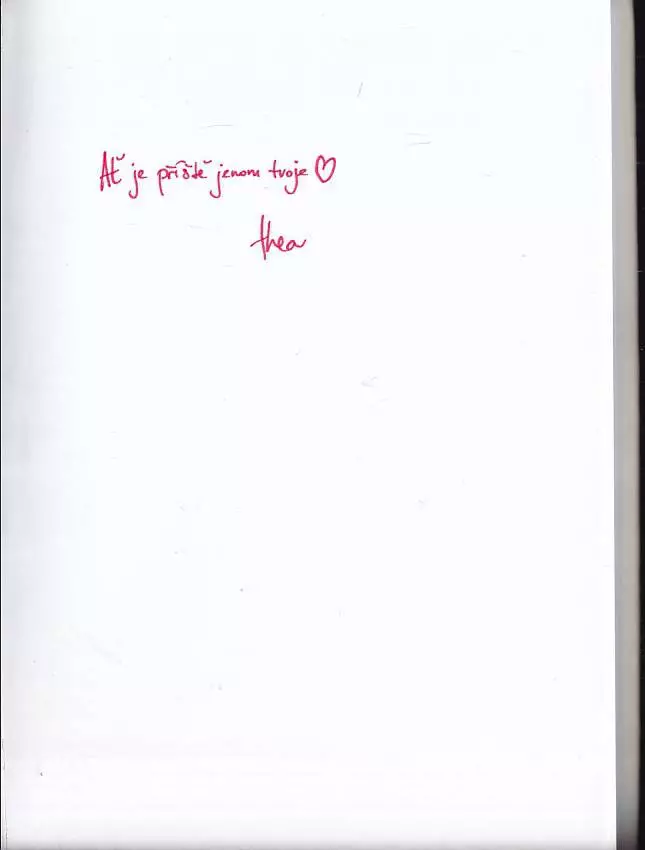 Ať je příště jenom tvoje ♡
thea